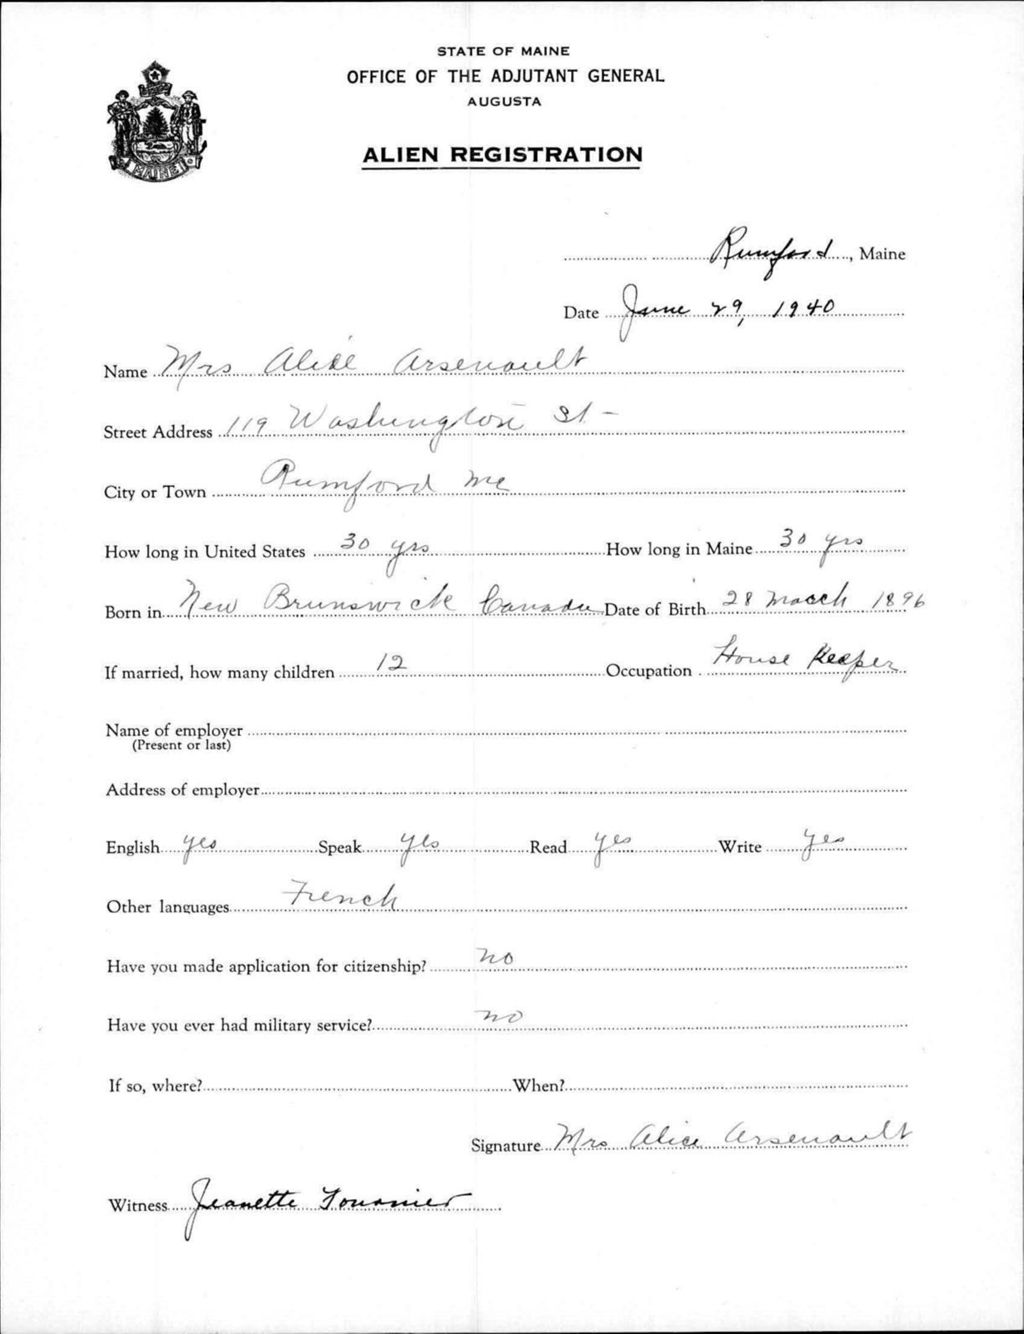 STATE OF MAINE
OFFICE OF THE ADJUTANT GENERAL
AUGUSTA
ALIEN REGISTRATION
MAINE
Rumford, Maine
Date June 29, 1940
Name Mrs Alice Arsenault
Street Address 119 Washington St-
City or Town Rumford Me
How long in United States 30 yrs How long in Maine 30 yrs
Born in New Brunswick Canada Date of Birth 28 March 1896
If married, how many children 12 Occupation House Keeper
Name of employer
(Present or last)
Address of employer
English yes Speak yes Read yes Write yes
Other languages French
Have you made application for citizenship? no
Have you ever had military service? no
If so, where? When?
Signature Mrs Alice Arsenault
Witness Jeanette Fournier